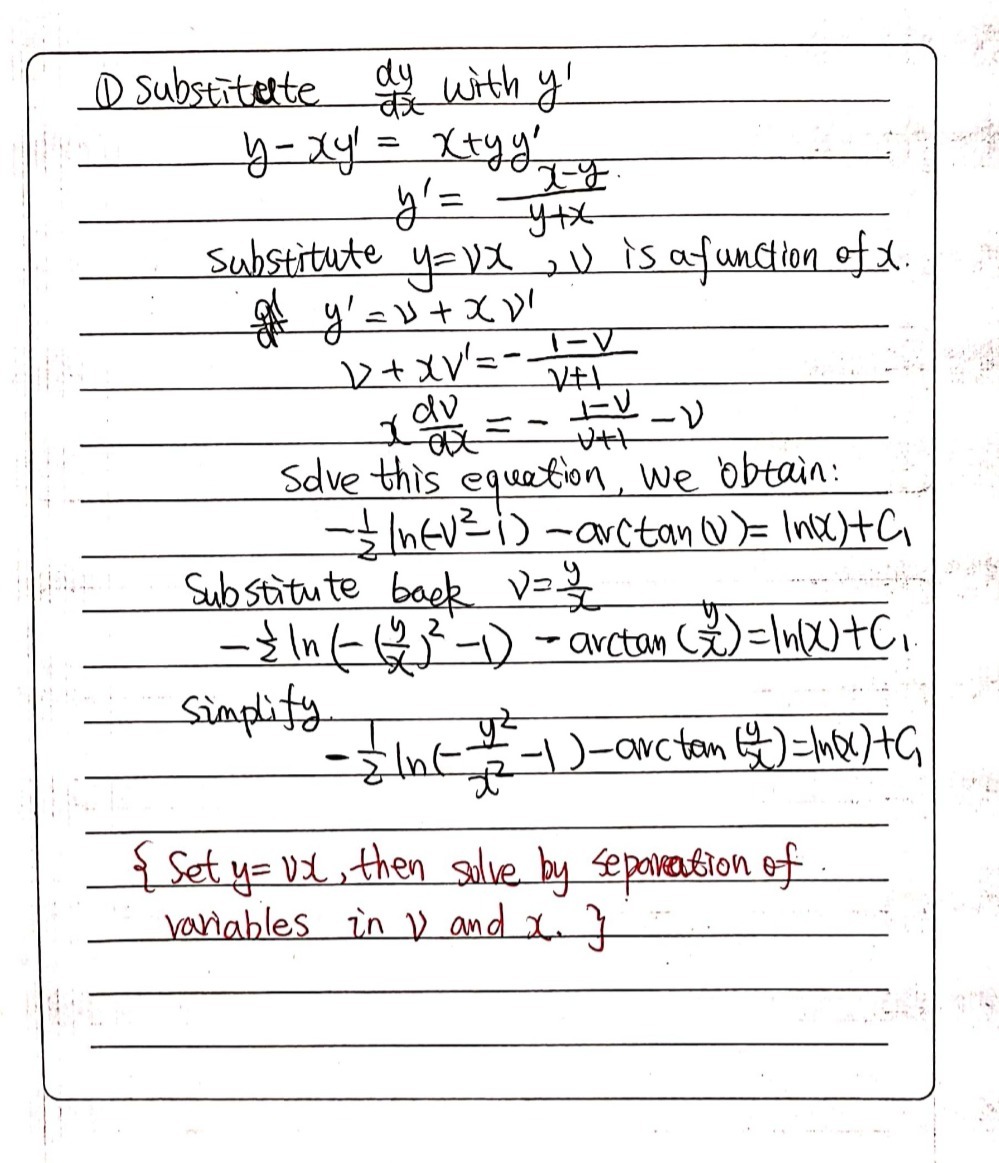 ① Substitute dy/dx with y'
y - xy' = x+yy'
y' = (x-y)/(y+x)
Substitute y=vx , v is a function of x.
y' = v + x v'
v + xv' = - (1-v)/(v+1)
x dv/dx = - (1-v)/(v+1) - v
Solve this equation, we obtain:
-1/2 ln(-v²-1) - arctan(v) = ln(x)+C₁
Substitute back v=y/x
-1/2 ln(-(y/x)²-1) - arctan(y/x) = ln(x)+C₁.
Simplify.
-1/2 ln(-y²/x²-1) - arctan(y/x) = ln(x)+C₁
{ Set y=vx, then solve by separation of
variables in v and x. }